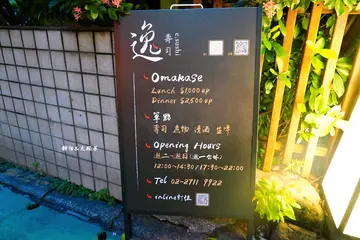 逸
壽司
e sushi
Omakase
Lunch $1,000 up
Dinner $2,500 up
單點
壽司 煮物 清酒
Opening Hours
週二~週日 (週一公休)
12:00~14:30/17:30~22:00
Tel 02-2711 9922
inline